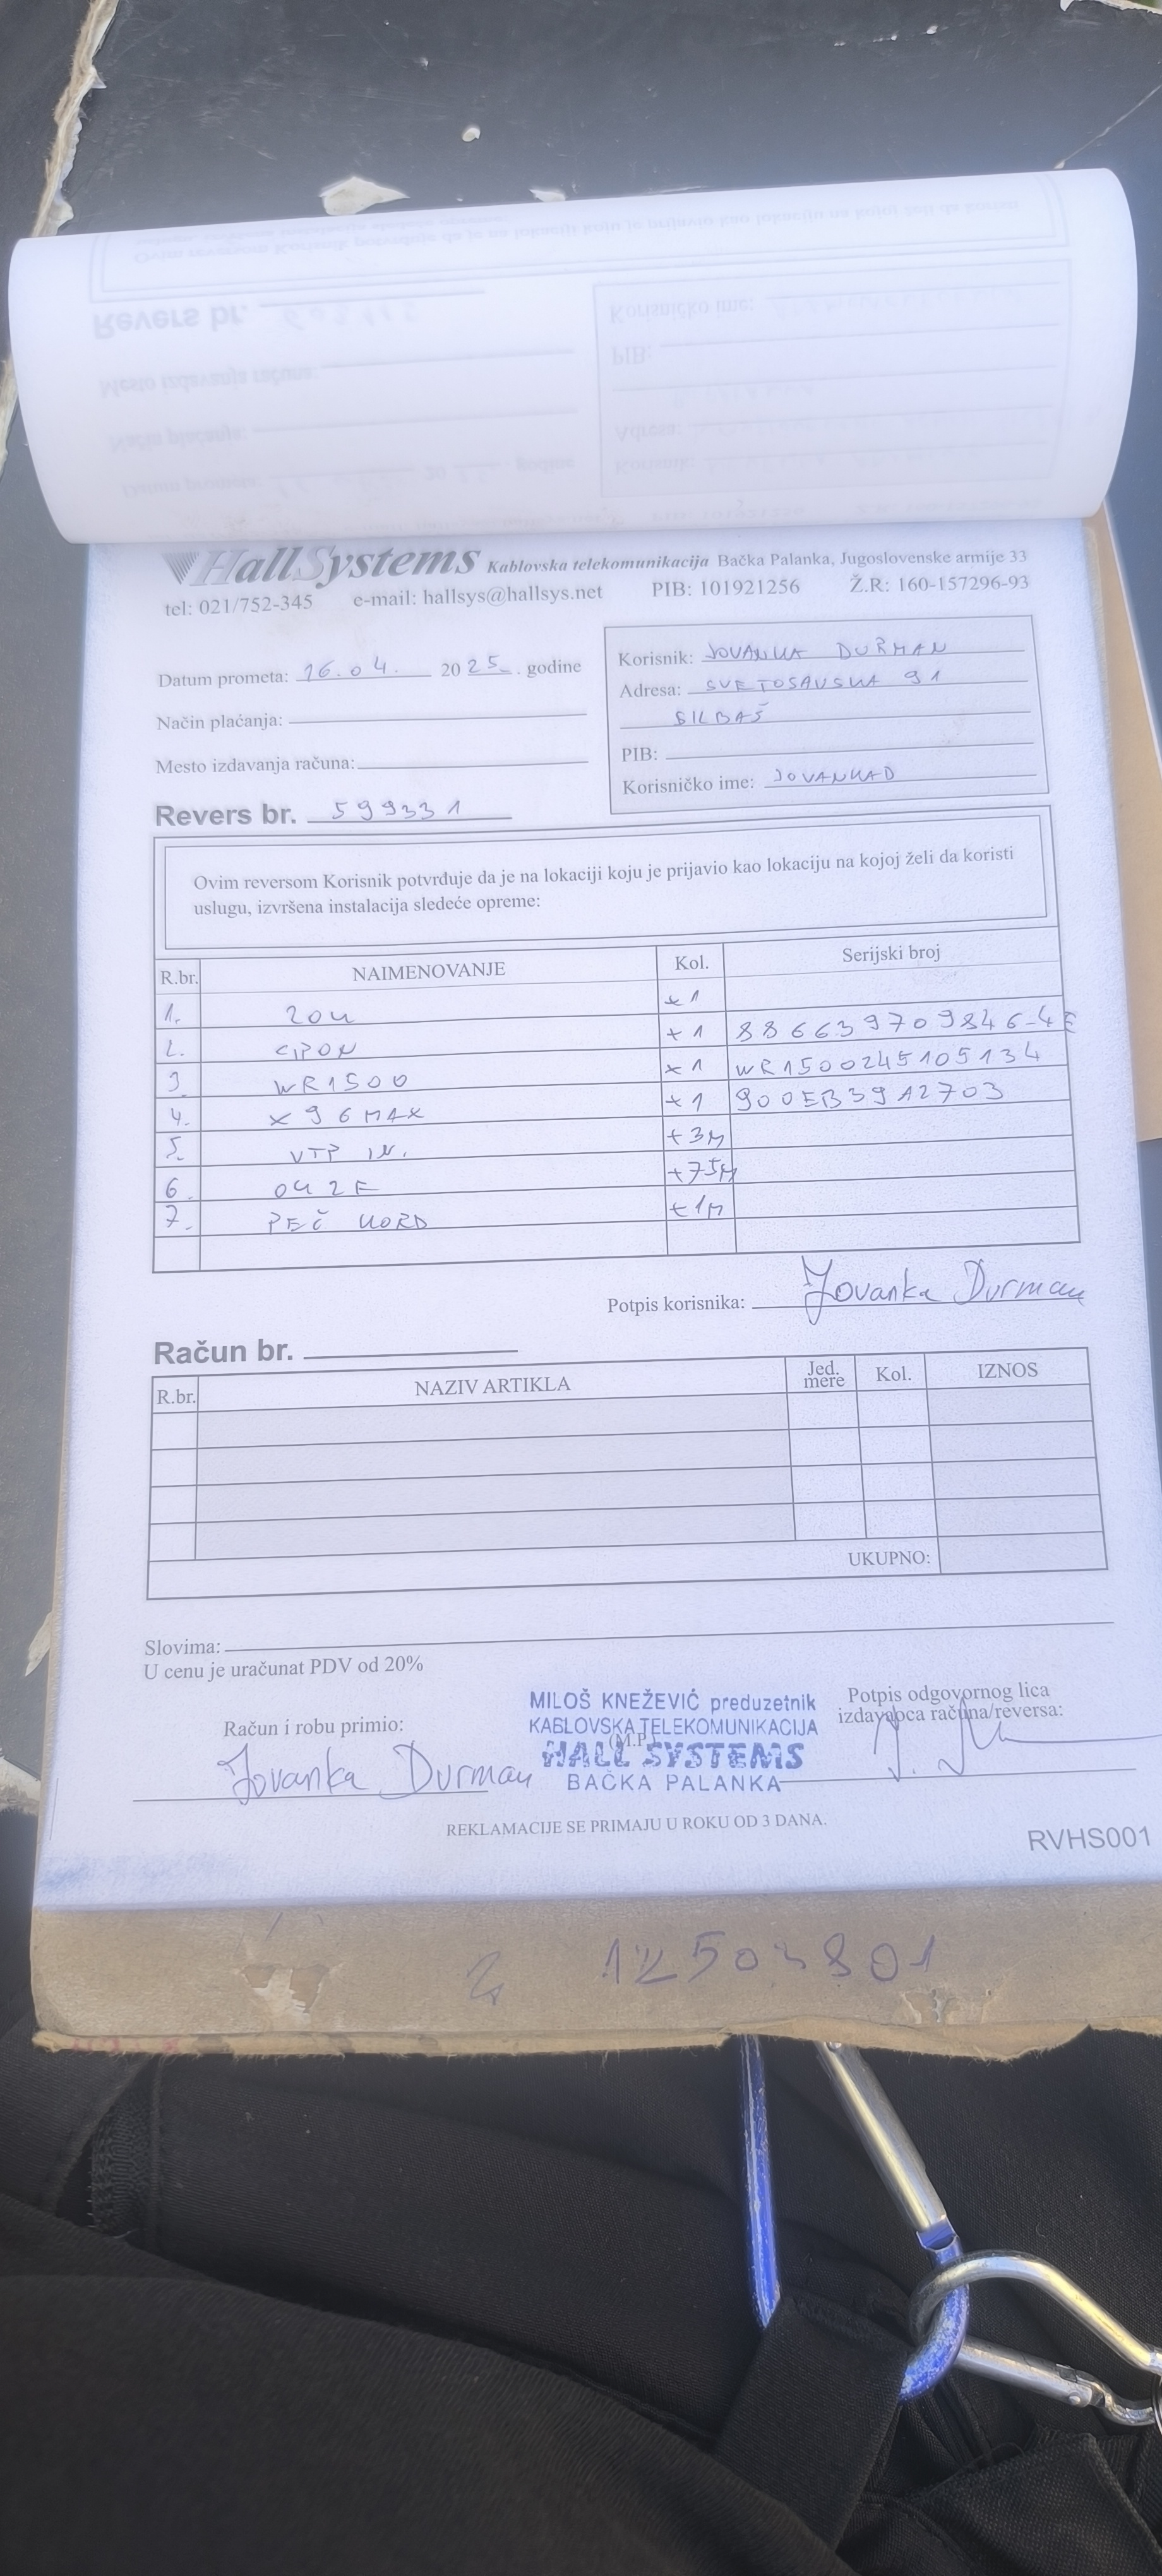 HallSystems Kablovska telekomunikacija Bačka Palanka, Jugoslovenske armije 33
tel: 021/752-345 e-mail: hallsys@hallsys.net PIB: 101921256 Ž.R: 160-157296-93
Datum prometa: 16.04. 2025. godine
Način plaćanja:
Mesto izdavanja računa:
Korisnik: JOVANKA DURMAN
Adresa: SVETOSAVSKA 91
SILBAŠ
PIB:
Korisničko ime: JOVANKAD
Revers br. 599331
Ovim reversom Korisnik potvrđuje da je na lokaciji koju je prijavio kao lokaciju na kojoj želi da koristi
uslugu, izvršena instalacija sledeće opreme:
R.br. NAIMENOVANJE Kol. Serijski broj
1. ZOK +1
2. GPON +1 886639709846-4E
3. WR1500 +1 WR1500245105134
4. X96MAX +1 900EB39A2703
5. UTP IN. +3M
6. OK 2F +75M
7. PEČ KORD +1M
Potpis korisnika: Jovanka Durman
Račun br.
R.br. NAZIV ARTIKLA Jed. mere Kol. IZNOS
UKUPNO:
Slovima:
U cenu je uračunat PDV od 20%
Račun i robu primio:
Jovanka Durman
MILOŠ KNEŽEVIĆ preduzetnik
KABLOVSKA TELEKOMUNIKACIJA
(M.P.)
HALL SYSTEMS
BAČKA PALANKA
Potpis odgovornog lica
izdavaoca računa/reversa:
REKLAMACIJE SE PRIMAJU U ROKU OD 3 DANA.
RVHS001